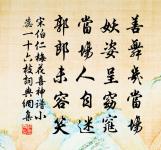 善舞幾當場
妖姿呈窈窕
當場人自迷
郭郎未容笑
宋伯仁梅花喜神譜小
蕊一十六枝詞典網集